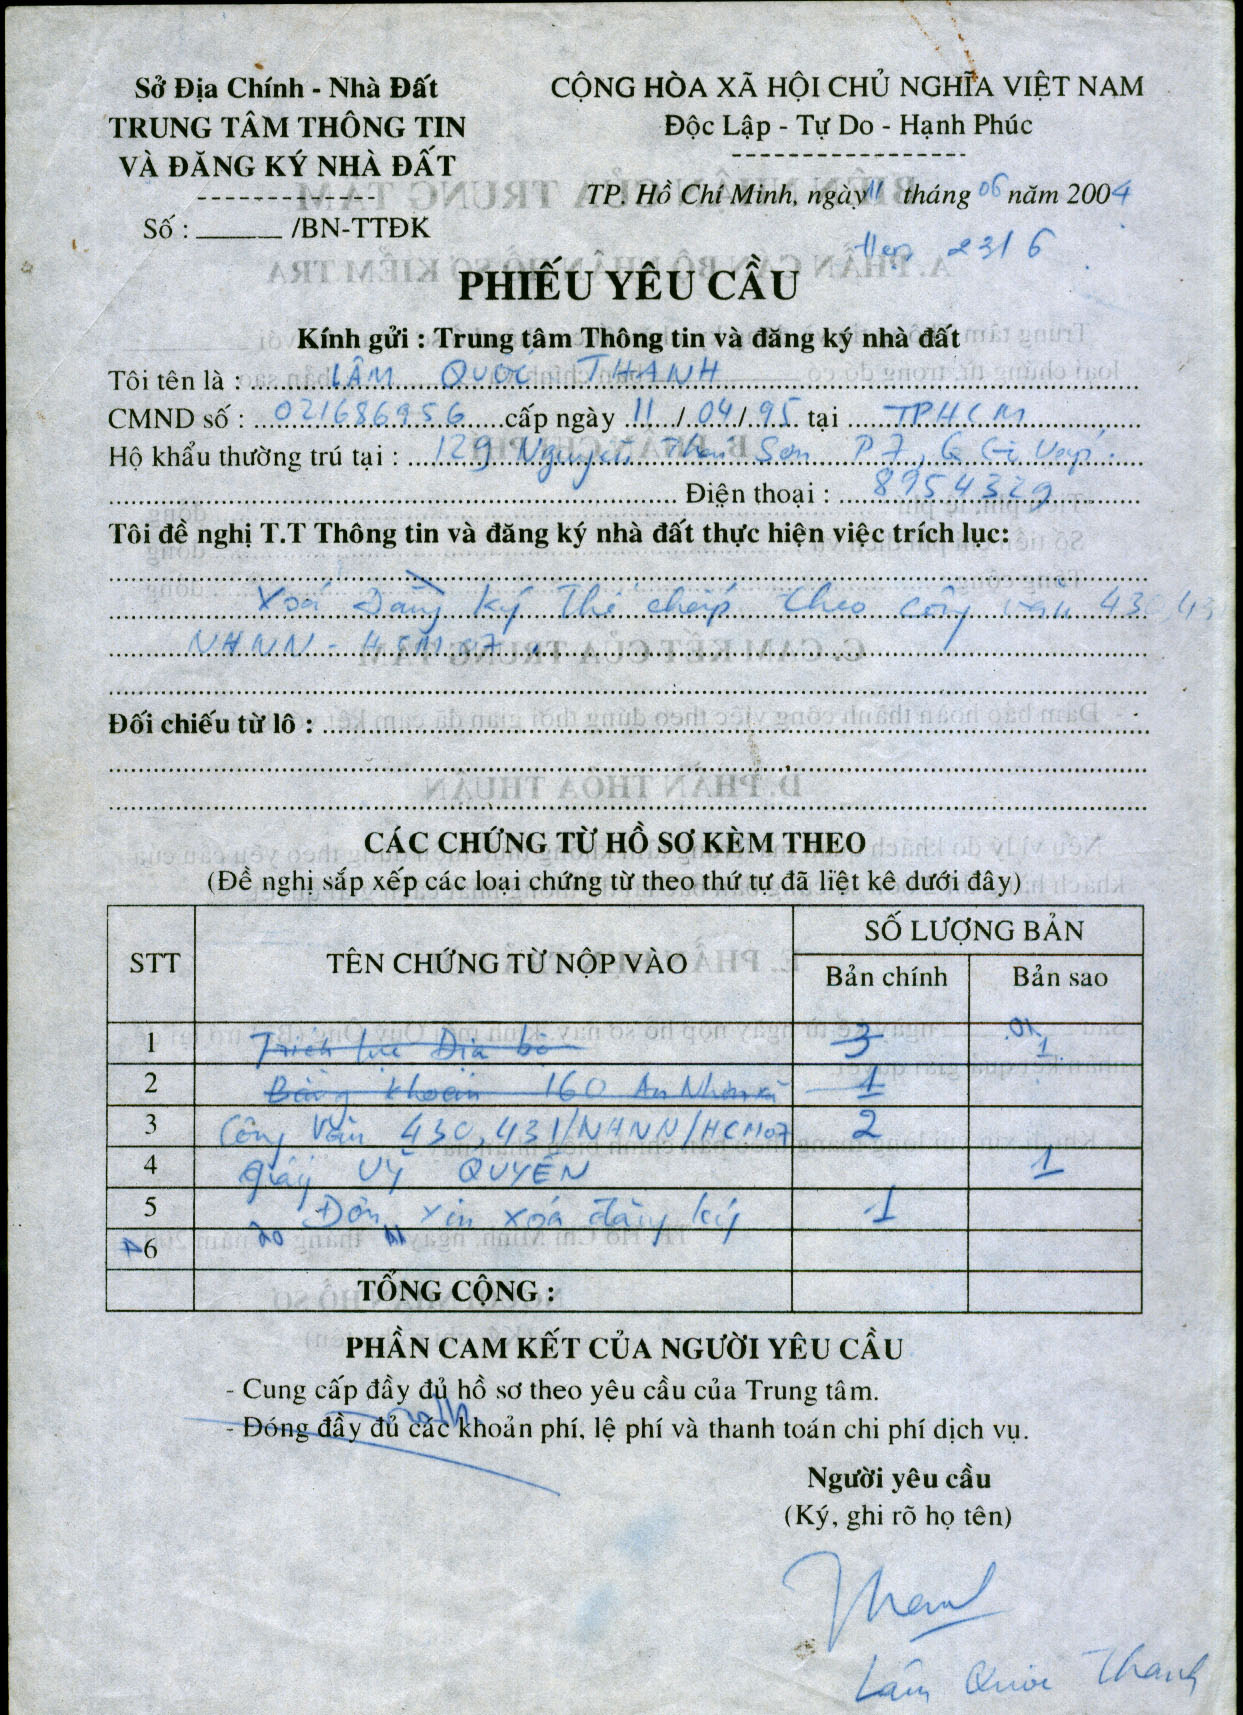 Sở Địa Chính - Nhà Đất
TRUNG TÂM THÔNG TIN
VÀ ĐĂNG KÝ NHÀ ĐẤT
Số : ______ /BN-TTĐK
CỘNG HÒA XÃ HỘI CHỦ NGHĨA VIỆT NAM
Độc Lập - Tự Do - Hạnh Phúc
TP. Hồ Chí Minh, ngày 11 tháng 06 năm 2004
Hẹn 23/6
PHIẾU YÊU CẦU
Kính gửi : Trung tâm Thông tin và đăng ký nhà đất
Tôi tên là : LÂM QUỐC THANH
CMND số : 021686956 cấp ngày 11 / 04 / 95 tại TPHCM
Hộ khẩu thường trú tại : 129 Nguyễn Thái Sơn P7, Q Gò Vấp.
Điện thoại : 8954329
Tôi đề nghị T.T Thông tin và đăng ký nhà đất thực hiện việc trích lục:
Xoá Đăng ký thế chấp theo công văn 430, 431
NHNN - HCM 07.
Đối chiếu từ lô :
CÁC CHỨNG TỪ HỒ SƠ KÈM THEO
(Đề nghị sắp xếp các loại chứng từ theo thứ tự đã liệt kê dưới đây)
STT TÊN CHỨNG TỪ NỘP VÀO SỐ LƯỢNG BẢN
Bản chính Bản sao
1 Trích lục Địa bộ 3 01 1
2 Bằng khoán 160 An Nhơn xã 1
3 Công văn 430, 431/NHNN/HCM07 2
4 Giấy UỶ QUYỀN 1
5 Đơn xin xoá đăng ký 1
6
TỔNG CỘNG :
PHẦN CAM KẾT CỦA NGƯỜI YÊU CẦU
- Cung cấp đầy đủ hồ sơ theo yêu cầu của Trung tâm.
- Đóng đầy đủ các khoản phí, lệ phí và thanh toán chi phí dịch vụ.
Người yêu cầu
(Ký, ghi rõ họ tên)
Lâm Quốc Thanh